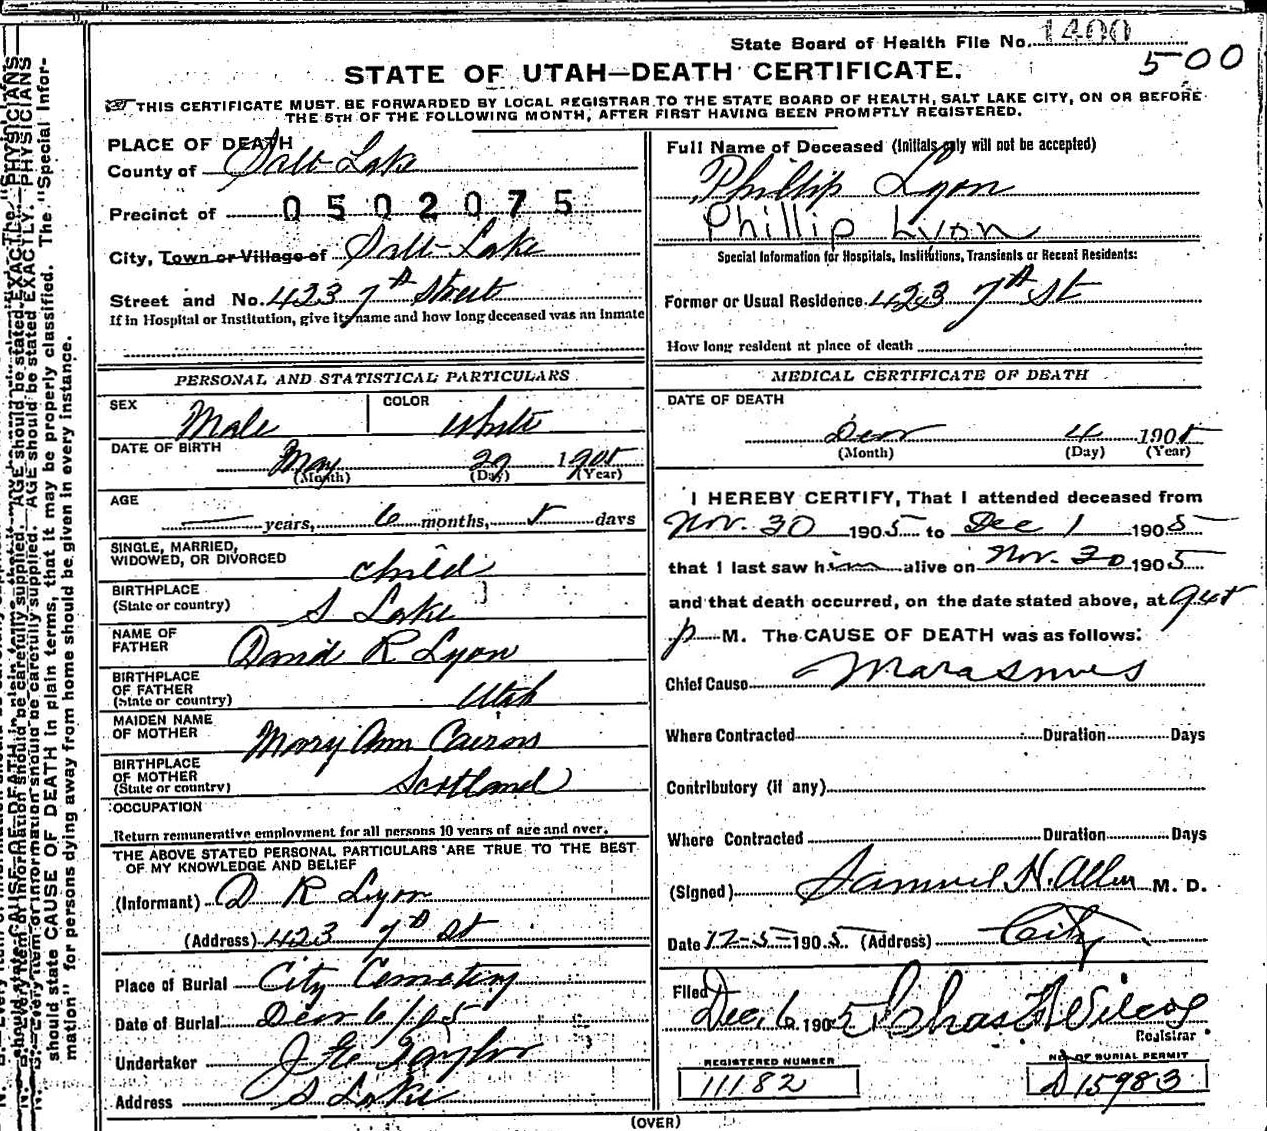 State Board of Health File No. 1400
500
STATE OF UTAH—DEATH CERTIFICATE.
THIS CERTIFICATE MUST BE FORWARDED BY LOCAL REGISTRAR TO THE STATE BOARD OF HEALTH, SALT LAKE CITY, ON OR BEFORE
THE 5TH OF THE FOLLOWING MONTH, AFTER FIRST HAVING BEEN PROMPTLY REGISTERED.
PLACE OF DEATH
County of Salt Lake
Precinct of 0502075
City, Town or Village of Salt Lake
Street and No. 423 7th Street
If in Hospital or Institution, give its name and how long deceased was an inmate
Full Name of Deceased (Initials only will not be accepted)
Phillip Lyon
Phillip Lyon
Special Information for Hospitals, Institutions, Transients or Recent Residents:
Former or Usual Residence 423 7th St
How long resident at place of death
PERSONAL AND STATISTICAL PARTICULARS
SEX Male
COLOR White
DATE OF BIRTH
May 29 1905
(Month) (Day) (Year)
AGE
— years, 6 months, 5 days
SINGLE, MARRIED,
WIDOWED, OR DIVORCED child
BIRTHPLACE
(State or country) S Lake
NAME OF
FATHER David R Lyon
BIRTHPLACE
OF FATHER
(State or country) Utah
MAIDEN NAME
OF MOTHER Mary Ann Cairns
BIRTHPLACE
OF MOTHER
(State or country) Scotland
OCCUPATION
Return remunerative employment for all persons 10 years of age and over.
THE ABOVE STATED PERSONAL PARTICULARS ARE TRUE TO THE BEST
OF MY KNOWLEDGE AND BELIEF
(Informant) D R Lyon
(Address) 423 7th St
Place of Burial City Cemetery
Date of Burial Decr 6/05
Undertaker Taylor
Address S Lake
MEDICAL CERTIFICATE OF DEATH
DATE OF DEATH
Decr 4 1905
(Month) (Day) (Year)
I HEREBY CERTIFY, That I attended deceased from
Nov. 30 1905 to Dec 1 1905
that I last saw him alive on Nov. 30 1905
and that death occurred, on the date stated above, at 945
p M. The CAUSE OF DEATH was as follows:
Chief Cause Marasmus
Where Contracted Duration Days
Contributory (if any)
Where Contracted Duration Days
(Signed) Samuel H. Allen M. D.
Date 12-5-1905 (Address) City
Filed
Dec. 6 1905 Chas Wilcox
Registrar
REGISTERED NUMBER
11182
NO. OF BURIAL PERMIT
D 15983
(OVER)
should state CAUSE OF DEATH in plain terms, that it may be properly classified. The "Special Infor-
mation" for persons dying away from home should be given in every instance.